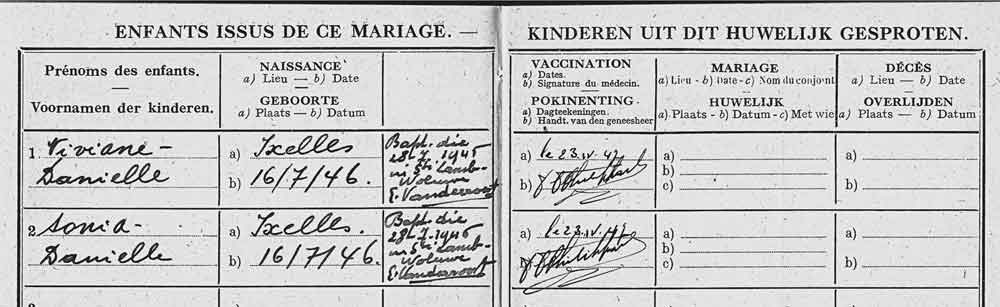 ENFANTS ISSUS DE CE MARIAGE. —
Prénoms des enfants.
—
Voornamen der kinderen.
NAISSANCE
a) Lieu — b) Date
—
GEBOORTE
a) Plaats — b) Datum
1. Viviane-
Danielle
a) Ixelles
b) 16/7/46.
Bapt. die
28.7.1946
in St. Lamb-
Woluwe
E. Vandervoort
2. Sonia-
Danielle
a) Ixelles.
b) 16/7/46.
Bapt. die
28.7.1946
in St. Lamb-
Woluwe
E. Vandervoort
KINDEREN UIT DIT HUWELIJK GESPROTEN.
VACCINATION
a) Dates.
b) Signature du médecin.
POKINENTING
a) Dagteekeningen.
b) Handt. van den geneesheer
MARIAGE
a) Lieu - b) Date - c) Nom du conjoint
—
HUWELIJK
a) Plaats - b) Datum - c) Met wie
DÉCÈS
a) Lieu — b) Date
—
OVERLIJDEN
a) Plaats — b) Datum
a) le 23.IV.47
b)
a)
b)
c)
a)
b)
a) le 23.IV.47
b)
a)
b)
c)
a)
b)